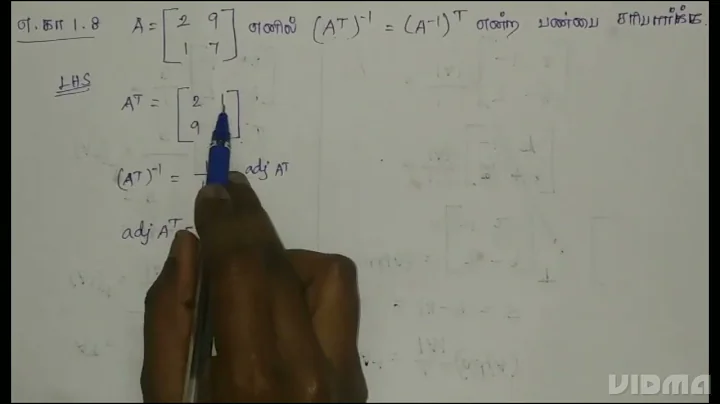 எ.கா 1.8 A = [2 9 எனில் (Aᵀ)⁻¹ = (A⁻¹)ᵀ என்ற பண்பை சரிபார்க்க.
1 7]
LHS
Aᵀ = [2 1
9 ]
(Aᵀ)⁻¹ = 1 adj Aᵀ
adj Aᵀ =
VIDMA